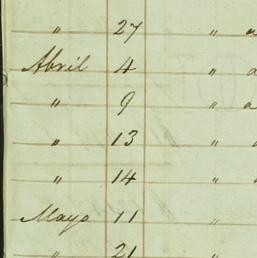 " 27 " a
Abril 4 " a
" 9 " a
" 13 "
" 14 "
Mayo 11 "
" 21 "